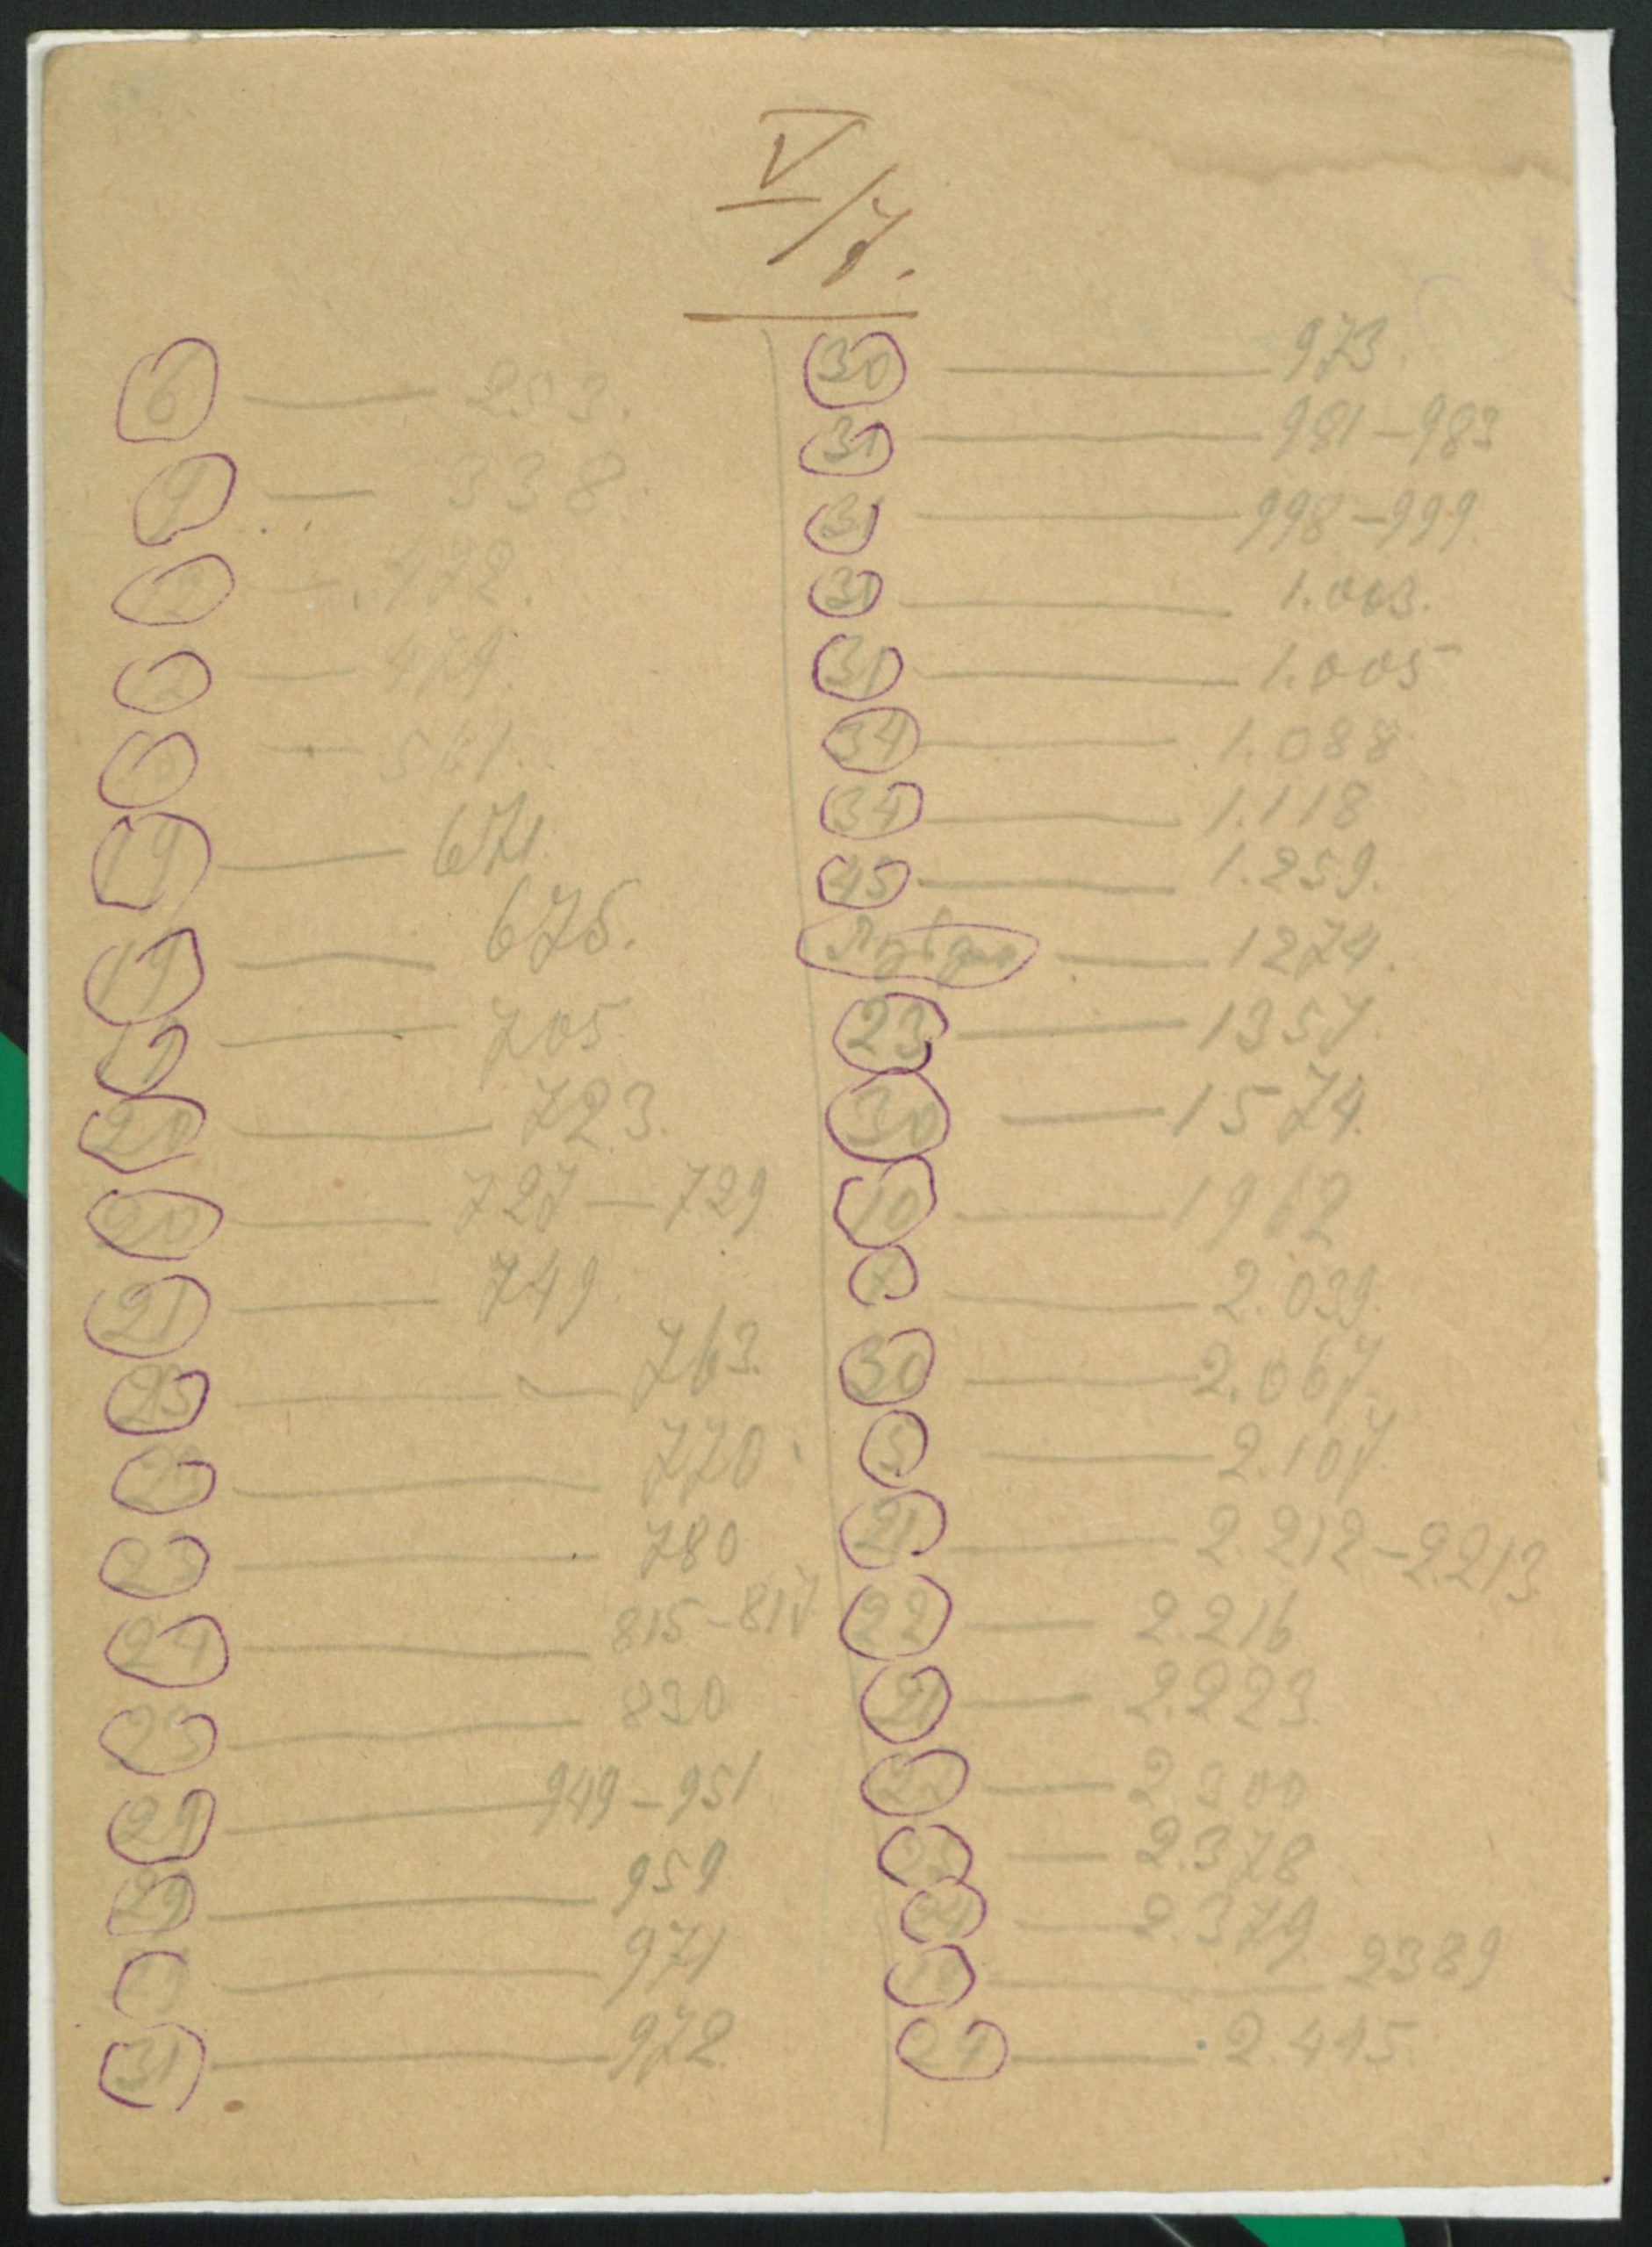 V/7.
6 — 253.
9 — 338.
12 — 472.
12 — 479.
— 561.
19 — 671.
19 — 675.
19 — 705
20 — 723.
20 — 727 — 729
21 — 749
23 — 763.
23 — 770.
23 — 780
24 — 815-817
23 — 830
29 — 949-951
29 — 959
— 971
31 — 972
30 — 973.
31 — 981-983
31 — 998-999
31 — 1.003.
31 — 1.005
34 — 1.088
34 — 1.118
45 — 1.259.
— 1274.
23 — 1357.
30 — 1574.
10 — 1962
7 — 2.039.
30 — 2.067.
5 — 2.107.
21 — 2.212-2.213
22 — 2.216
21 — 2.223.
22 — 2.300
— 2.378
— 2.379.
— 2389
24 — 2.445